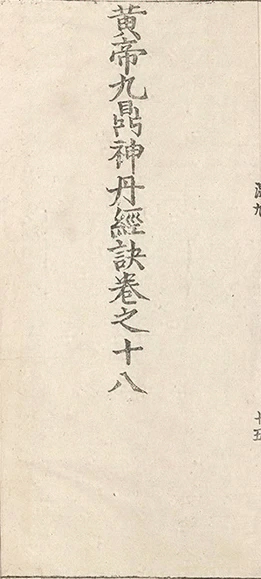 黄帝九鼎神丹經訣卷之十八
十五